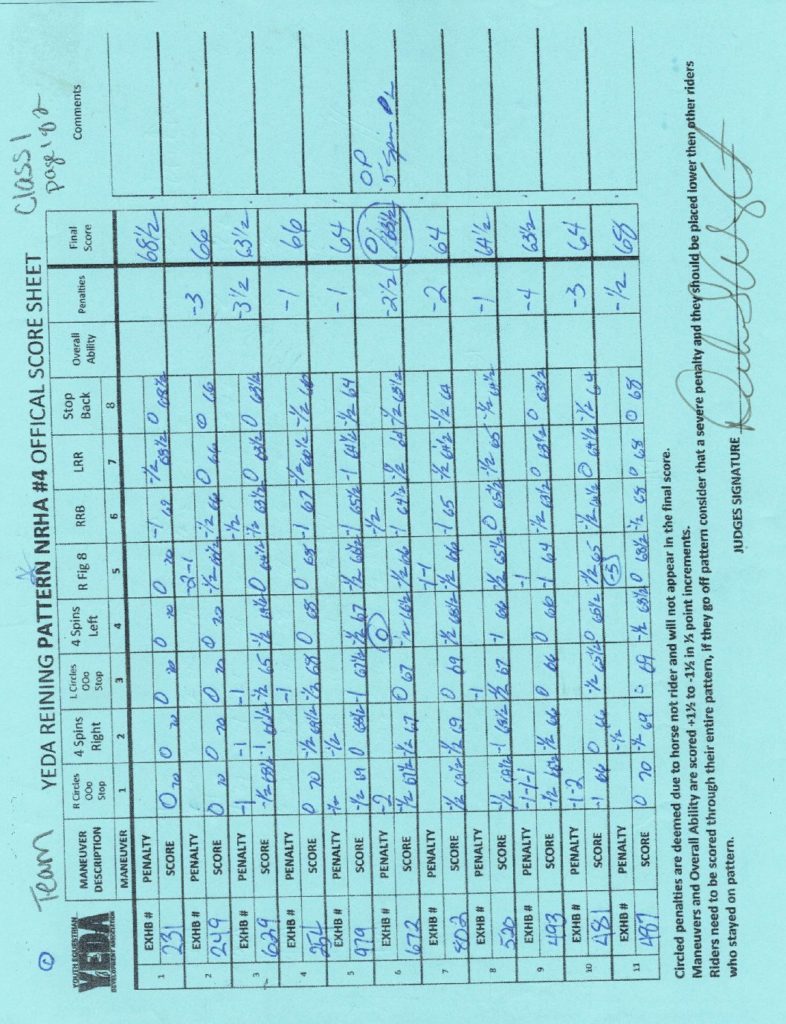 ① Team YEDA REINING PATTERN NRHA #4 OFFICAL SCORE SHEET Class 1
page 1 of 2
YOUTH EQUESTRIAN
YEDA
DEVELOPMENT ASSOCIATION
MANEUVER DESCRIPTION R Circles OOo Stop 4 Spins Right L Circles OOo Stop 4 Spins Left R Fig 8 RRB LRR Stop Back Overall Ability Penalties Final Score Comments
MANEUVER 1 2 3 4 5 6 7 8
1 EXHB # PENALTY
231 SCORE 0 70 0 70 0 70 0 70 0 70 -1 69 -½ 68½ 0 68½ 68½
2 EXHB # PENALTY -2 -1 -3
249 SCORE 0 70 0 70 0 70 0 70 -½ 66½ -½ 66 0 66 0 66 66
3 EXHB # PENALTY -1 -1 -1 -½ -3½
629 SCORE -½ 68½ -1 66½ -½ 65 -½ 64½ 0 64½ -½ 63½ 0 63½ 0 63½ 63½
4 EXHB # PENALTY -1 -1
254 SCORE 0 70 -½ 69½ -½ 68 0 68 0 68 -1 67 -½ 66½ -½ 66 66
5 EXHB # PENALTY -½ -½ -1
979 SCORE -½ 69 0 68½ -1 67½ -½ 67 -½ 66½ -1 65½ -1 64½ -½ 64 64
6 EXHB # PENALTY -2 0 -½ -2½ 0 OP
672 SCORE -½ 67½ -½ 67 0 67 -½ 66½ -½ 66 -1 64½ -½ 64 -½ 63½ 63½ 5 Spin
7 EXHB # PENALTY -1 -1 -2
802 SCORE -½ 69½ -½ 69 0 69 -½ 68½ -½ 66 -1 65 -½ 64½ -½ 64 64
8 EXHB # PENALTY -1 -1
520 SCORE -½ 69½ -1 68½ -½ 67 -1 66 -½ 65½ 0 65½ -½ 65 -½ 64½ 64½
9 EXHB # PENALTY -1 -1 -1 -1 -4
493 SCORE -½ 66½ -½ 66 0 66 0 66 -1 64 -½ 63½ 0 63½ 0 63½ 63½
10 EXHB # PENALTY -1 -2 -3
481 SCORE -1 66 0 66 -½ 65½ 0 65½ -½ 65 -½ 64½ 0 64½ -½ 64 64
11 EXHB # PENALTY -½ -5 -½
487 SCORE 0 70 -½ 69 0 69 -½ 68½ 0 68½ -½ 68 0 68 0 68 68
Circled penalties are deemed due to horse not rider and will not appear in the final score.
Maneuvers and Overall Ability are scored +1½ to -1½ in ½ point increments.
Riders need to be scored through their entire pattern, if they go off pattern consider that a severe penalty and they should be placed lower then other riders
who stayed on pattern.
JUDGES SIGNATURE